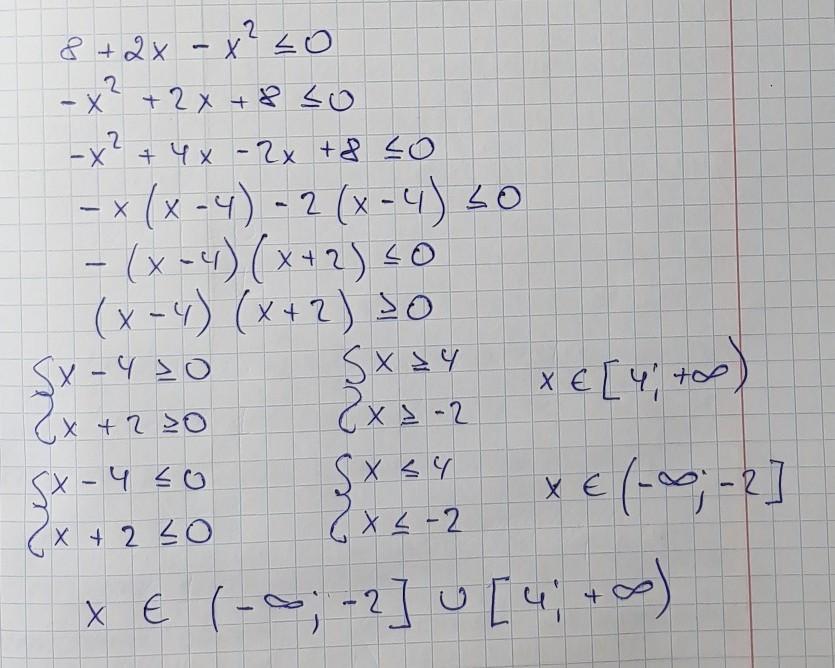 8 + 2x - x² ≤ 0
-x² + 2x + 8 ≤ 0
-x² + 4x - 2x + 8 ≤ 0
-x(x - 4) - 2(x - 4) ≤ 0
-(x - 4)(x + 2) ≤ 0
(x - 4)(x + 2) ≥ 0
{x - 4 ≥ 0 {x ≥ 4 x ∈ [4; +∞)
{x + 2 ≥ 0 {x ≥ -2
{x - 4 ≤ 0 {x ≤ 4 x ∈ (-∞; -2]
{x + 2 ≤ 0 {x ≤ -2
x ∈ (-∞; -2] ∪ [4; +∞)